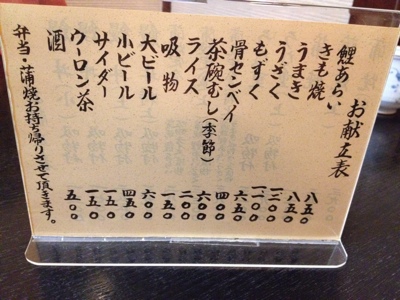 お献立表
鯉あらい 八五〇
きも焼 八五〇
うまき 一三〇〇
うざく
もずく 六五〇
骨センベイ 四〇〇
茶碗むし(季節) 六〇〇
ライス 二〇〇
吸物 一五〇
大ビール 六〇〇
小ビール 四五〇
サイダー 一五〇
ウーロン茶 一五〇
酒 五〇〇
弁当・蒲焼お持ち帰りさせて頂きます。